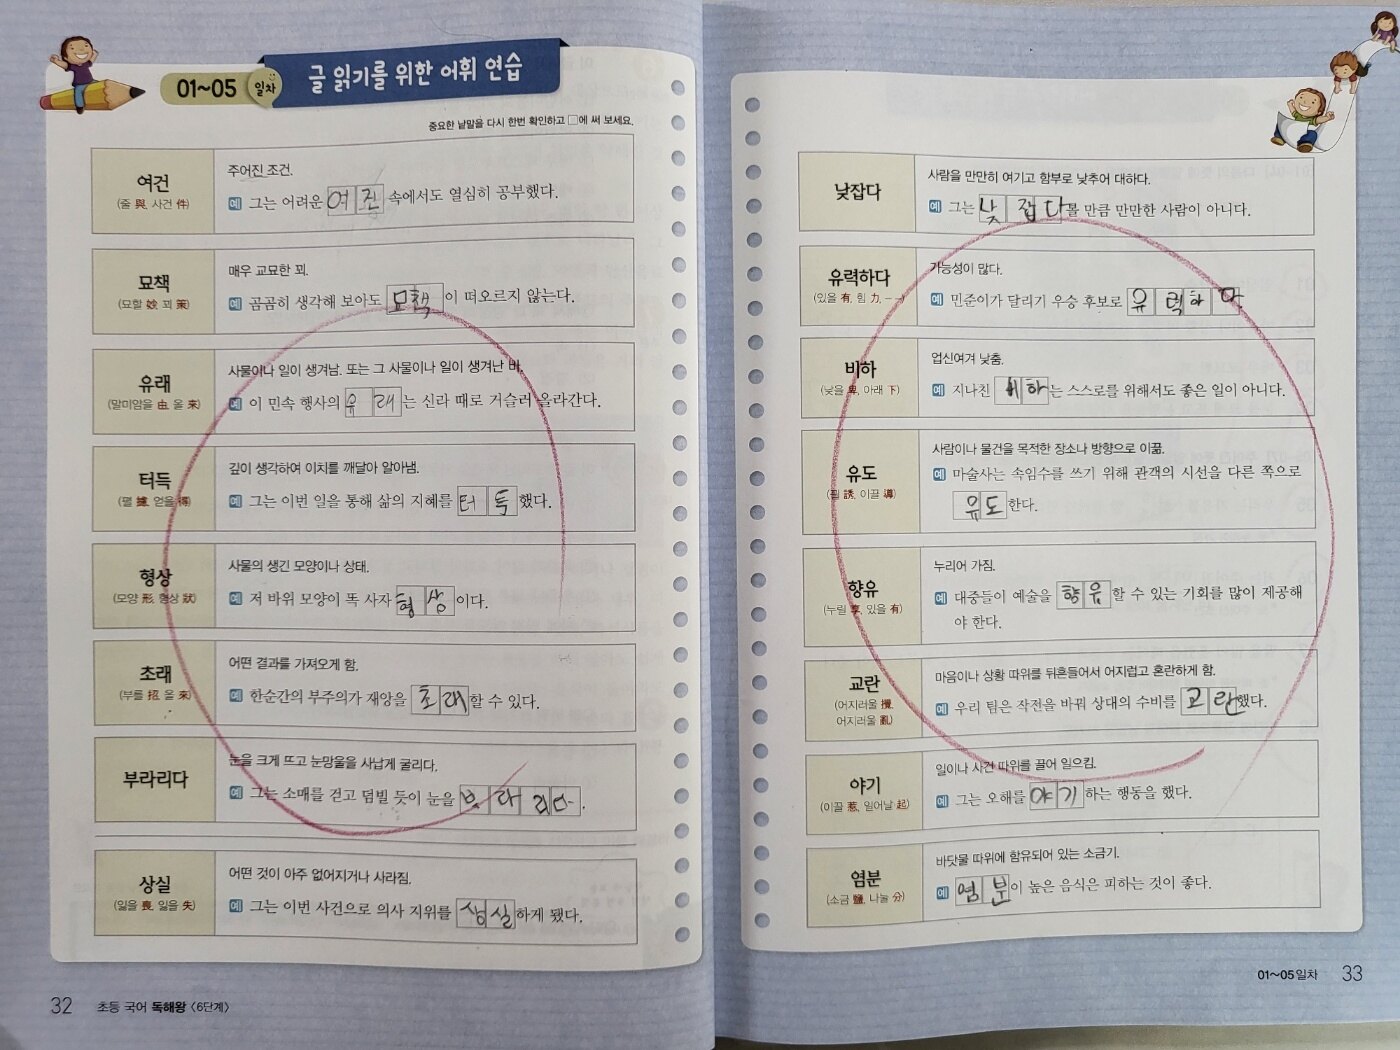 01~05 일차 글 읽기를 위한 어휘 연습
중요한 낱말을 다시 한번 확인하고 □에 써 보세요.
여건
(줄 與, 사건 件)
주어진 조건.
예 그는 어려운 여건 속에서도 열심히 공부했다.
묘책
(묘할 妙, 꾀 策)
매우 교묘한 꾀.
예 곰곰히 생각해 보아도 묘책이 떠오르지 않는다.
유래
(말미암을 由, 올 來)
사물이나 일이 생겨남. 또는 그 사물이나 일이 생겨난 바.
예 이 민속 행사의 유래는 신라 때로 거슬러 올라간다.
터득
(펼 攄, 얻을 得)
깊이 생각하여 이치를 깨달아 알아냄.
예 그는 이번 일을 통해 삶의 지혜를 터득했다.
형상
(모양 形, 형상 狀)
사물의 생긴 모양이나 상태.
예 저 바위 모양이 똑 사자 형상이다.
초래
(부를 招, 올 來)
어떤 결과를 가져오게 함.
예 한순간의 부주의가 재앙을 초래할 수 있다.
부라리다
눈을 크게 뜨고 눈망울을 사납게 굴리다.
예 그는 소매를 걷고 덤빌 듯이 눈을 부라리다.
상실
(잃을 喪, 잃을 失)
어떤 것이 아주 없어지거나 사라짐.
예 그는 이번 사건으로 의사 지위를 상실하게 됐다.
32 초등 국어 독해왕 <6단계>
낮잡다
사람을 만만히 여기고 함부로 낮추어 대하다.
예 그는 낮잡다볼 만큼 만만한 사람이 아니다.
유력하다
(있을 有, 힘 力, --)
가능성이 많다.
예 민준이가 달리기 우승 후보로 유력하다.
비하
(낮을 卑, 아래 下)
업신여겨 낮춤.
예 지나친 비하는 스스로를 위해서도 좋은 일이 아니다.
유도
(꾈 誘, 이끌 導)
사람이나 물건을 목적한 장소나 방향으로 이끎.
예 마술사는 속임수를 쓰기 위해 관객의 시선을 다른 쪽으로
유도한다.
향유
(누릴 享, 있을 有)
누리어 가짐.
예 대중들이 예술을 향유할 수 있는 기회를 많이 제공해
야 한다.
교란
(어지러울 攪,
어지러울 亂)
마음이나 상황 따위를 뒤흔들어서 어지럽고 혼란하게 함.
예 우리 팀은 작전을 바꿔 상대의 수비를 교란했다.
야기
(이끌 惹, 일어날 起)
일이나 사건 따위를 끌어 일으킴.
예 그는 오해를 야기하는 행동을 했다.
염분
(소금 鹽, 나눌 分)
바닷물 따위에 함유되어 있는 소금기.
예 염분이 높은 음식은 피하는 것이 좋다.
01~05일차 33